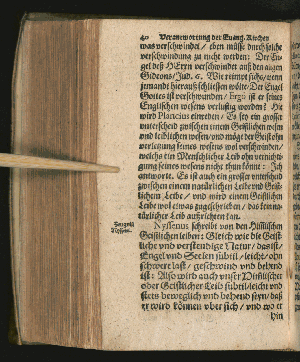 40 Verantwortung der Evang. Kirchen
was verschwindet / eben müste durch solche
verschwindung zu nicht werden: Der En-
gel deß HErrn verschwindet auß den augen
Gideons / Jud. 6. Wie reimpt sichs / wenn
jemandt hierauß schliessen wolte / Der Engel
Gottes ist verschwunden / Ergo ist er seines
Englischen wesens verlustig worden? Hie
wird Plancius einreden / Es sey ein grosser
unterscheid zwischen einem Geistlichen wesen
und leiblichen wesen / und möge der Geist ohn
verletzung seines wesens wol verschwinden /
welchs ein Menschlicher Leib ohn vernicht-
igung seines wesens nicht thun könne: Ich
antworte. Es ist auch ein grosser unterscheid
zwischen einem natürlichen Leibe und Geist-
lichem Leibe / und wird einem Geistlichen
Leibe wol etwas zugeschrieben / das dem na-
türlicher Leib
Nyssenus schreibt von den
Geistlichen leiben: Gleich wie die Geist-
liche und verstendige Natur / das ist /
Engel und Seelen subtil / leicht / ohn
schwere last / geschwind und behend
ist: Also wird auch unser
oder Geistlicher Leib subtil / leicht und
stets beweglich und behend seyn / das
er wird können uber sich / und wo er
hin